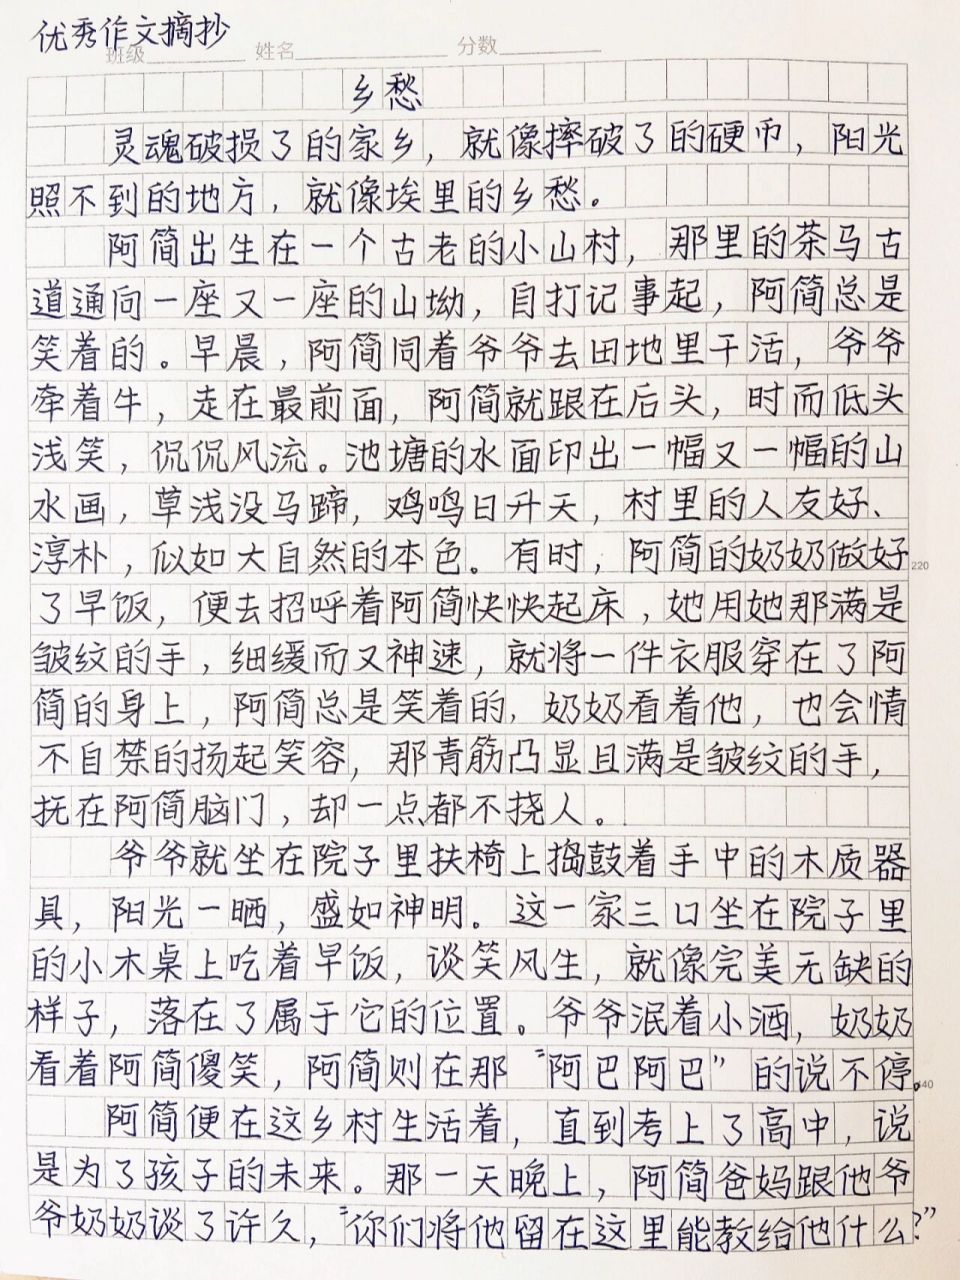 优秀作文摘抄
班级 姓名 分数
乡愁
灵魂破损了的家乡，就像摔破了的硬币，阳光
照不到的地方，就像埃里的乡愁。
阿简出生在一个古老的小山村，那里的茶马古
道通向一座又一座的山坳，自打记事起，阿简总是
笑着的。早晨，阿简同着爷爷去田地里干活，爷爷
牵着牛，走在最前面，阿简就跟在后头，时而低头
浅笑，侃侃风流。池塘的水面印出一幅又一幅的山
水画，草浅没马蹄，鸡鸣日升天，村里的人友好、
淳朴，似如大自然的本色。有时，阿简的奶奶做好
220
了早饭，便去招呼着阿简快快起床，她用她那满是
皱纹的手，细缓而又神速，就将一件衣服穿在了阿
简的身上，阿简总是笑着的，奶奶看着他，也会情
不自禁的扬起笑容，那青筋凸显且满是皱纹的手，
抚在阿简脑门，却一点都不挠人。
爷爷就坐在院子里扶椅上捣鼓着手中的木质器
具，阳光一晒，盛如神明。这一家三口坐在院子里
的小木桌上吃着早饭，谈笑风生，就像完美无缺的
样子，落在了属于它的位置。爷爷泯着小酒，奶奶
看着阿简傻笑，阿简则在那“阿巴阿巴”的说不停。
阿简便在这乡村生活着，直到考上了高中，说
是为了孩子的未来。那一天晚上，阿简爸妈跟他爷
爷奶奶谈了许久，“你们将他留在这里能教给他什么？”